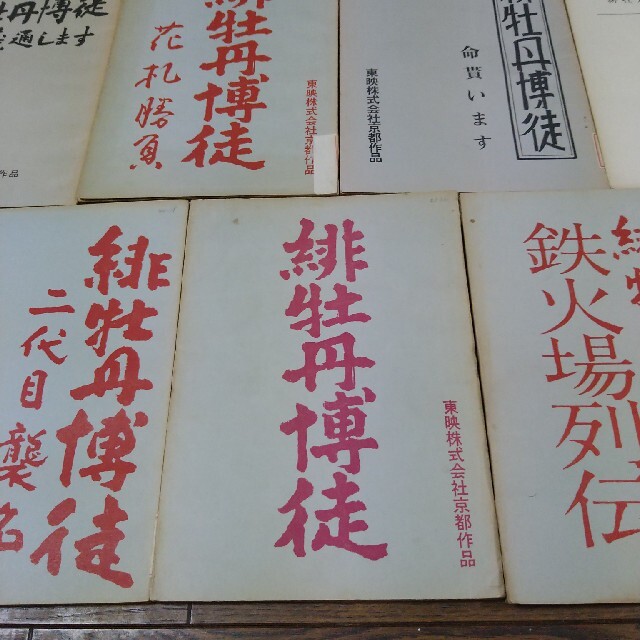 牡丹博徒
通します
作品
緋牡丹博徒
花札勝負
東映株式会社京都作品
緋牡丹博徒
命貰います
東映株式会社京都作品
緋牡丹博徒
二代目襲名
緋牡丹博徒
東映株式会社京都作品
緋牡
鉄火場列伝